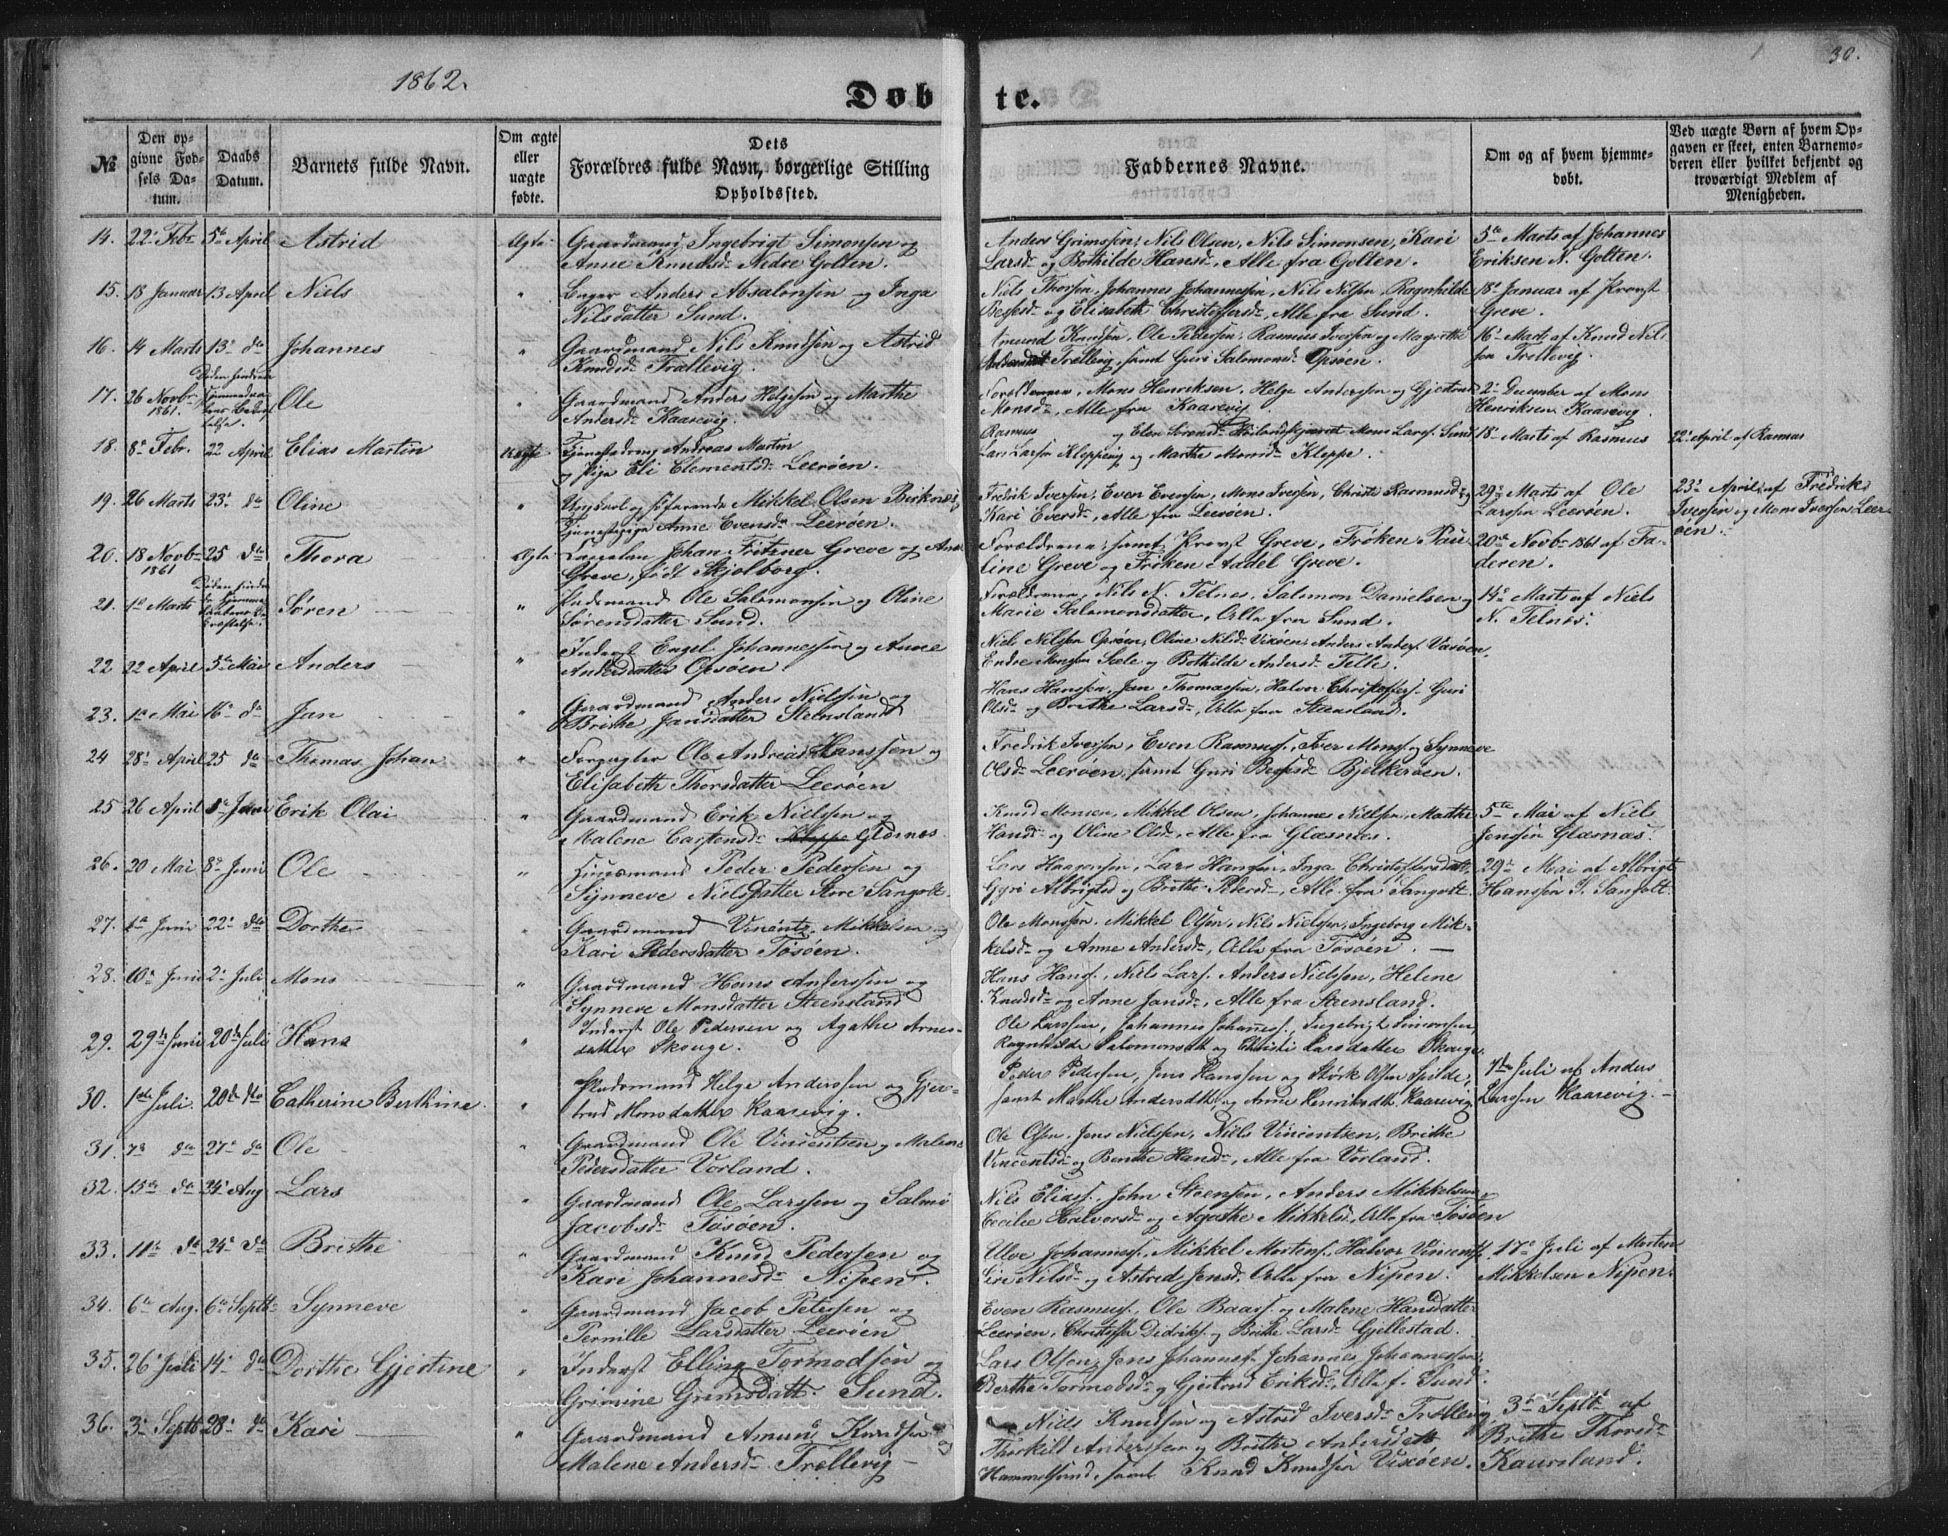 1862.
30.
Døbte.
№
Den opgivne Fødsels Datum.
Daabs Datum.
Barnets fulde Navn.
Om ægte eller uægte fødte.
Dets Forældres fulde Navn, borgerlige Stilling Opholdssted.
Faddernes Navne.
Om og af hvem hjemmedøbt.
Ved uægte Børn af hvem Opgaven er skeet, enten Barnemoderen eller hvilket bekjendt og troværdigt Medlem af Menigheden.
14. 22. Febr 5te April Astrid Ægte Gaardmand Ingebrigt Simonsen og Anders Grimssen, Nils Olsen, Nils Simonsen, Kari 5te Marts af Johannes
Anne Knudsd. Nedre Golten. Larsd. og Bothilde Hansd., Alle fra Golten. Eriksen N. Golten.
15. 18 Januar 13 April Niels " Anders Absalonsen og Inga Niels Thorsen, Johannes Johannessen, Nils Nilsen, Ragnhilde 18. Januar af Provst
Nilsdatter Sund. og Elisabeth Christoffersd., Alle fra Sund. Greve.
16. 14 Marts 13. do Johannes " Gaardmand Nils Knudsen og Astrid Amund Knudsen, Ole Pedersen, Rasmus Iversen og Magrethe 16. Marts af Knud Nils
Knudsd. Trællevig. Trællevig, samt Guri Salomonsd. Opsøen. fra Trellevig.
17. 26 Novbr. 1861. Ole " Gaardmand Anders Helgesen og Marthe Mons Henriksen, Helge Anderssen og Gjertrud 2. December af Mons
Andersd. Kaarevig. Monsd., Alle fra Kaarevig Henriksen Kaarevig.
18. 8. Febr. 22 April Elias Martin Uægte Andreas Martin Rasmus og Elen Sørensd. Mons Lars. Sund 18. Marts af Rasmus 22. April af Rasmus
og Pige Eli Clementsd. Leerøen. Lars Larsen Kleppevig og Marthe Monsd. Kleppe.
19. 26 Marts 23. do Oline " Ungkarl og Mikkel Olsen Birknes, Fredrik Iversen, Even Evensen, Mons Iversen, Christi Rasmusd. og 29. Marts af Ole 23. April af Fredrik
Tjenestepige Anne Evensd. Leerøen. Kari Eversd., Alle fra Leerøen. Larsen Leerøen. Iversen og Mons Iversen Leerøen.
20. 18 Novbr 1861 25 do Thora Ægte Johan Fritzner Greve og Anne Forældrene, samt Provst Greve, Frøken Pau- 20de Novbr 1861 af Fa-
Greve, født Skjolborg. line Greve og Frøken Aadel Greve. deren.
21. 1ste Marts Søren " Ole Salomonsen og Oline Forældrene, Nils N. Telnes, Salomon Danielsen og 14. Marts af Niels
Sørensdatter Sund. Marie Salomonsdatter, Alle fra Sund. N. Telnes.
22 22 April 5te Mai Anders " Inderst Engel Johannessen og Anne Niels Nilssen Opsøen, Oline Nilsd. Vixøen, Anders Anders. Vixøen,
Andersdatter Opsøen. Endre Monssen Sæle og Bothilde Andersd. Telle.
23. 1ste Mai 16. do Jan " Gaardmand Anders Nielssen og Hans Hanssen, Jan Thomassen, Halvor Christoffers. Guri
Brithe Jansdatter Steensland Olsd. og Brithe Larsd., Alle fra Steensland.
24 28. April 25 do Thomas Johan " Forpagter Ole Andreas Hanssen og Fredrik Iversen, Even Rasmuss. Iver Mons. og Synneve
Elisabeth Thorsdatter Leerøen Olsd. Leerøen, samt Guri Bersd. Bjelkerøen.
25 26 April 1ste Juni Erik Olai " Gaardmand Erik Nielssen og Knud Monsen, Mikkel Olsen, Johannes Nielsen, Marthe 5te Mai af Niels
Malene Carstensd. Glæsnes. Hansd. og Oline Olsd., Alle fra Glæsnes. Jensen Glæsnes.
26. 20 Mai 8. Juni Ole " Huusmand Peder Pedersen og Lars Haagensen, Lars Hansen, Inga Christoffersdatt. 29. Mai af Albrigt
Synneve Nielsdatter Store Sangolt. Gyri Albrigtsd. og Brithe Alle fra Sangolt. Hanssen S. Sangolt.
27. 1ste Juni 22. do Dorthe " Gaardmand Vincents Mikkelsen og Ole Monssen, Mikkel Olsen, Nils Nielssen, Ingeborg Mik-
Kari Pedersdatter Tøsøen. kelsd. og Anne Andersd., Alle fra Tøsøen.
28. 10. Juni 2. Juli Mons " Gaardmand Hans Anderssen og Hans Hans., Niels Lars. Anders Nielssen, Helene
Synneve Monsdatter Steensland Knudsd. og Anne Jansd., Alle fra Steensland.
29. 29de Juni 20de Juli Hans " Inderst Ole Pedersen og Agathe Arnes- Ole Larssen, Johannes Johanness., Ingebrigt Simonsen,
datter Skouge. Ragnhilde Salomonsdtt. og Christi Larsdatter Skouge.
30. 1ste Juli. 20de do Catherine Berthine " Helge Anderssen og Gjer- Peder Pedersen, Jens Hanssen og Størk Olsen Spilde, 7de Juli af Anders
trud Monsdatter Kaarevig. samt Marthe Andersdtt. og Anne Henriksdtt. Kaarevig. Larssen Kaarevig.
31. 7. do 27. do Ole " Gaardmand Ole Vincentsen og Malene Ole Olsen, Jens Nielssen, Niels Vincentsen, Brithe
Pedersdatter Vorland. Vincentsd. og Benthe Hansd., Alle fra Vorland.
32. 15de do 24. Aug Lars " Gaardmand Ole Larssen og Salmo Nils Elias. John Steensen, Anders Mikkelsen
Jacobsd. Tøsøen. Cecilie Halvorsd. og Agathe Mikkelsd., Alle fra Tøsøen
33. 11te do 24. do Brithe " Gaardmand Knud Pedersen og Ulve Johanness. Mikkel Mortens. Halvor Vincents. 17. Juli af Morten
Kari Johannesd. Nipen. Siri Nilsd. og Astrid Jensd. Alle fra Nipen. Mikkelsen Nipen.
34. 6te Aug. 6te Septbr Synneve " Gaardmand Jacob Petersen og Even Rasmus. Ole Baars. og Malene Hansdatter
Pernille Larsdatter Leerøen Leerøen, Christoffer Didriks. og Brithe Larsd. Gjellestad.
35. 26. Juli 14. do Dorthe Gjertine " Inderst Elling Tormodsen og Lars Olsen, Jens Johannes. Johannes Johannessen,
Grimine Grimsdatt. Sund. Berthe Tormodsd. og Gjertrud Eriksd., Alle f. Sund.
36. 3. Septbr 28. do Kari " Gaardmand Amund Knudsen og Niels Knudsen og Astrid Iversd. Trællevig, 3. Septbr af
Malene Andersd. Trællevig Thorkild Anderssen og Brithe Andersdatt. Brithe Thorsd.
Hammelsund, samt Knud Knudsen Vixøen. Kausland.